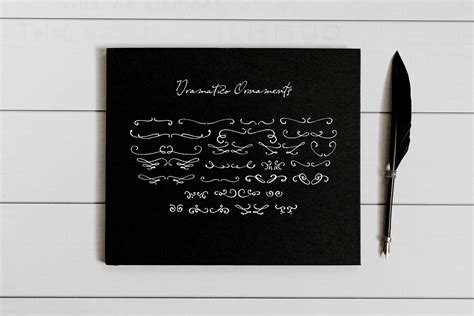 Dramatics Ornaments